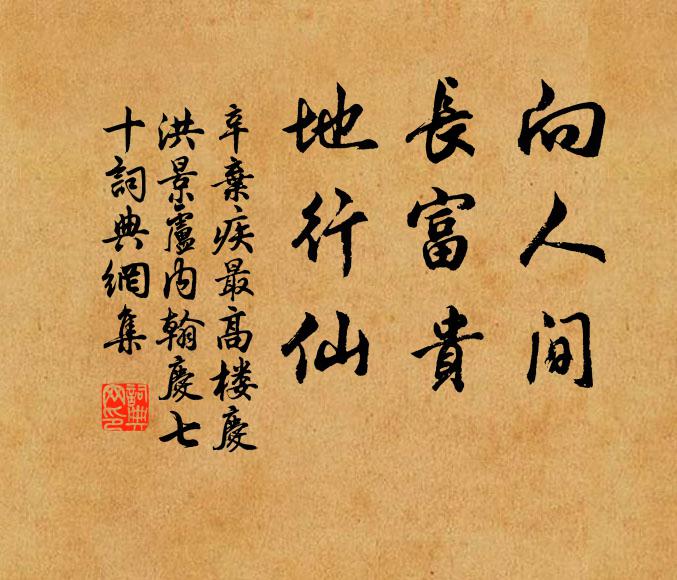 向人間
長富貴
地行仙
辛棄疾最高楼慶
洪景廬内翰慶七
十詞典網集
詞典
网印